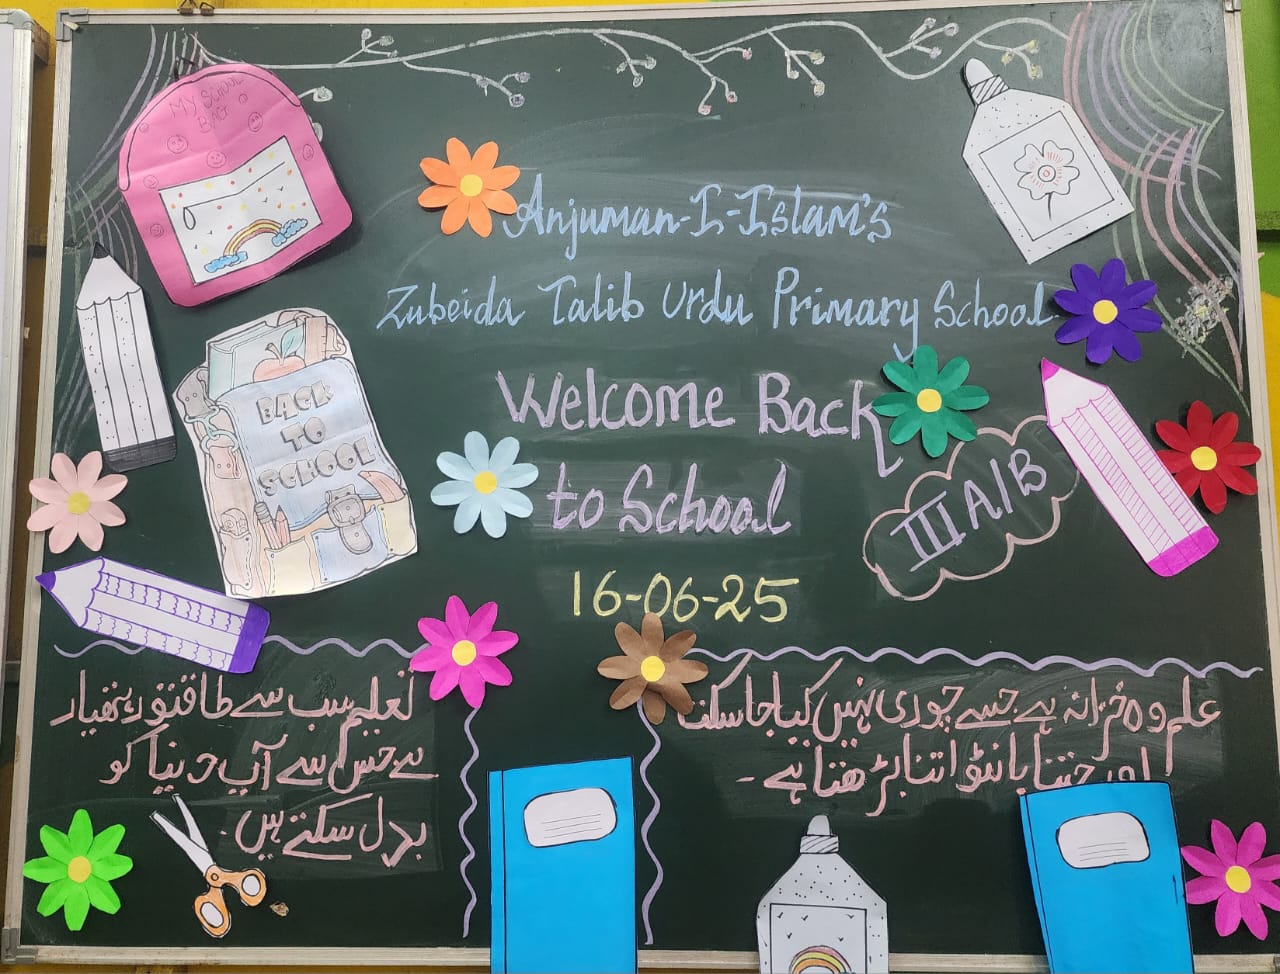 MY SCHOOL
BAG
Anjuman-I-Islam's
Zubeida Talib Urdu Primary School
Welcome Back
to School
III A/B
16-06-25
BACK
TO
SCHOOL
علم وہ خزانہ ہے جسے چوری نہیں کیا جا سکتا
اور جتنا بانٹو اتنا بڑھتا ہے -
تعلیم سب سے طاقتور ہتھیار
ہے جس سے آپ دنیا کو
بدل سکتے ہیں -